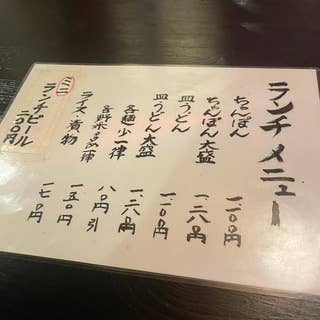 ランチメニュー
ちゃんぽん 一一〇〇円
ちゃんぽん大盛 一二八〇円
皿うどん 一一〇〇円
皿うどん大盛 一二八〇円
各麺少 一律 八〇円引
各野菜多め 一五〇円
ライス・漬物 一七〇円
ミニ
ランチビール
二〇〇円